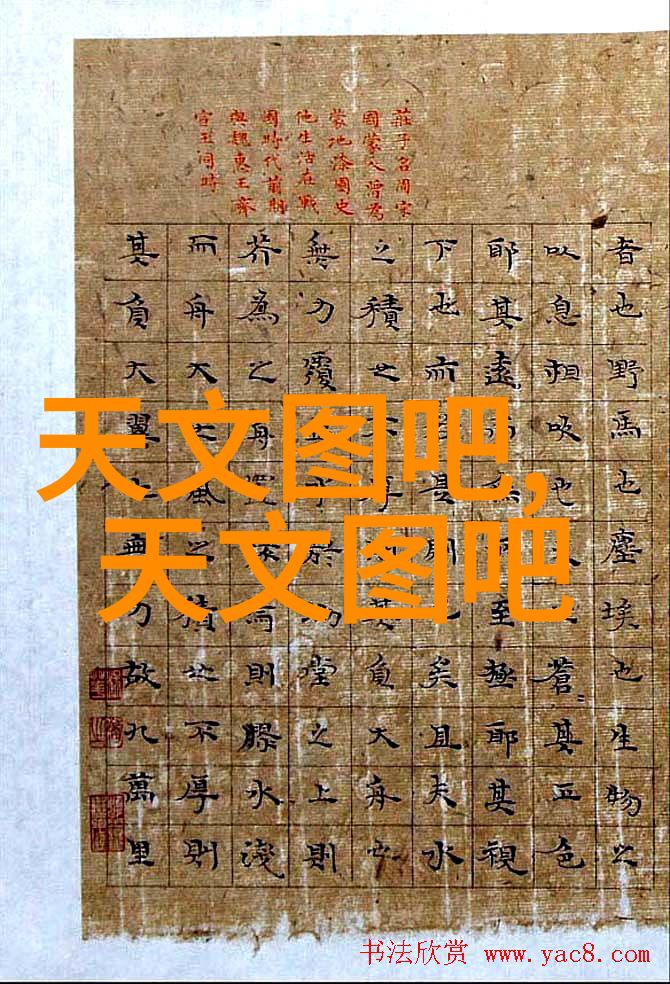 莊子名周宋
國蒙人曾為
蒙地漆園史
他生活在戰
國時代前期
與魏惠王齊
宣王同時
者也野馬也塵埃也生物之
以息相吹也天之蒼〻其正色
耶其遠而無所至極耶其視
下也而是則已矣且夫水
之積也不厚則其負大舟也
無力覆於坳堂之上則
芥為之舟置杯焉則膠水淺
而舟大也風之積也不厚則
其負大翼也無力故九萬里
天文图吧,
天文图吧
书法欣赏 www.yac8.com